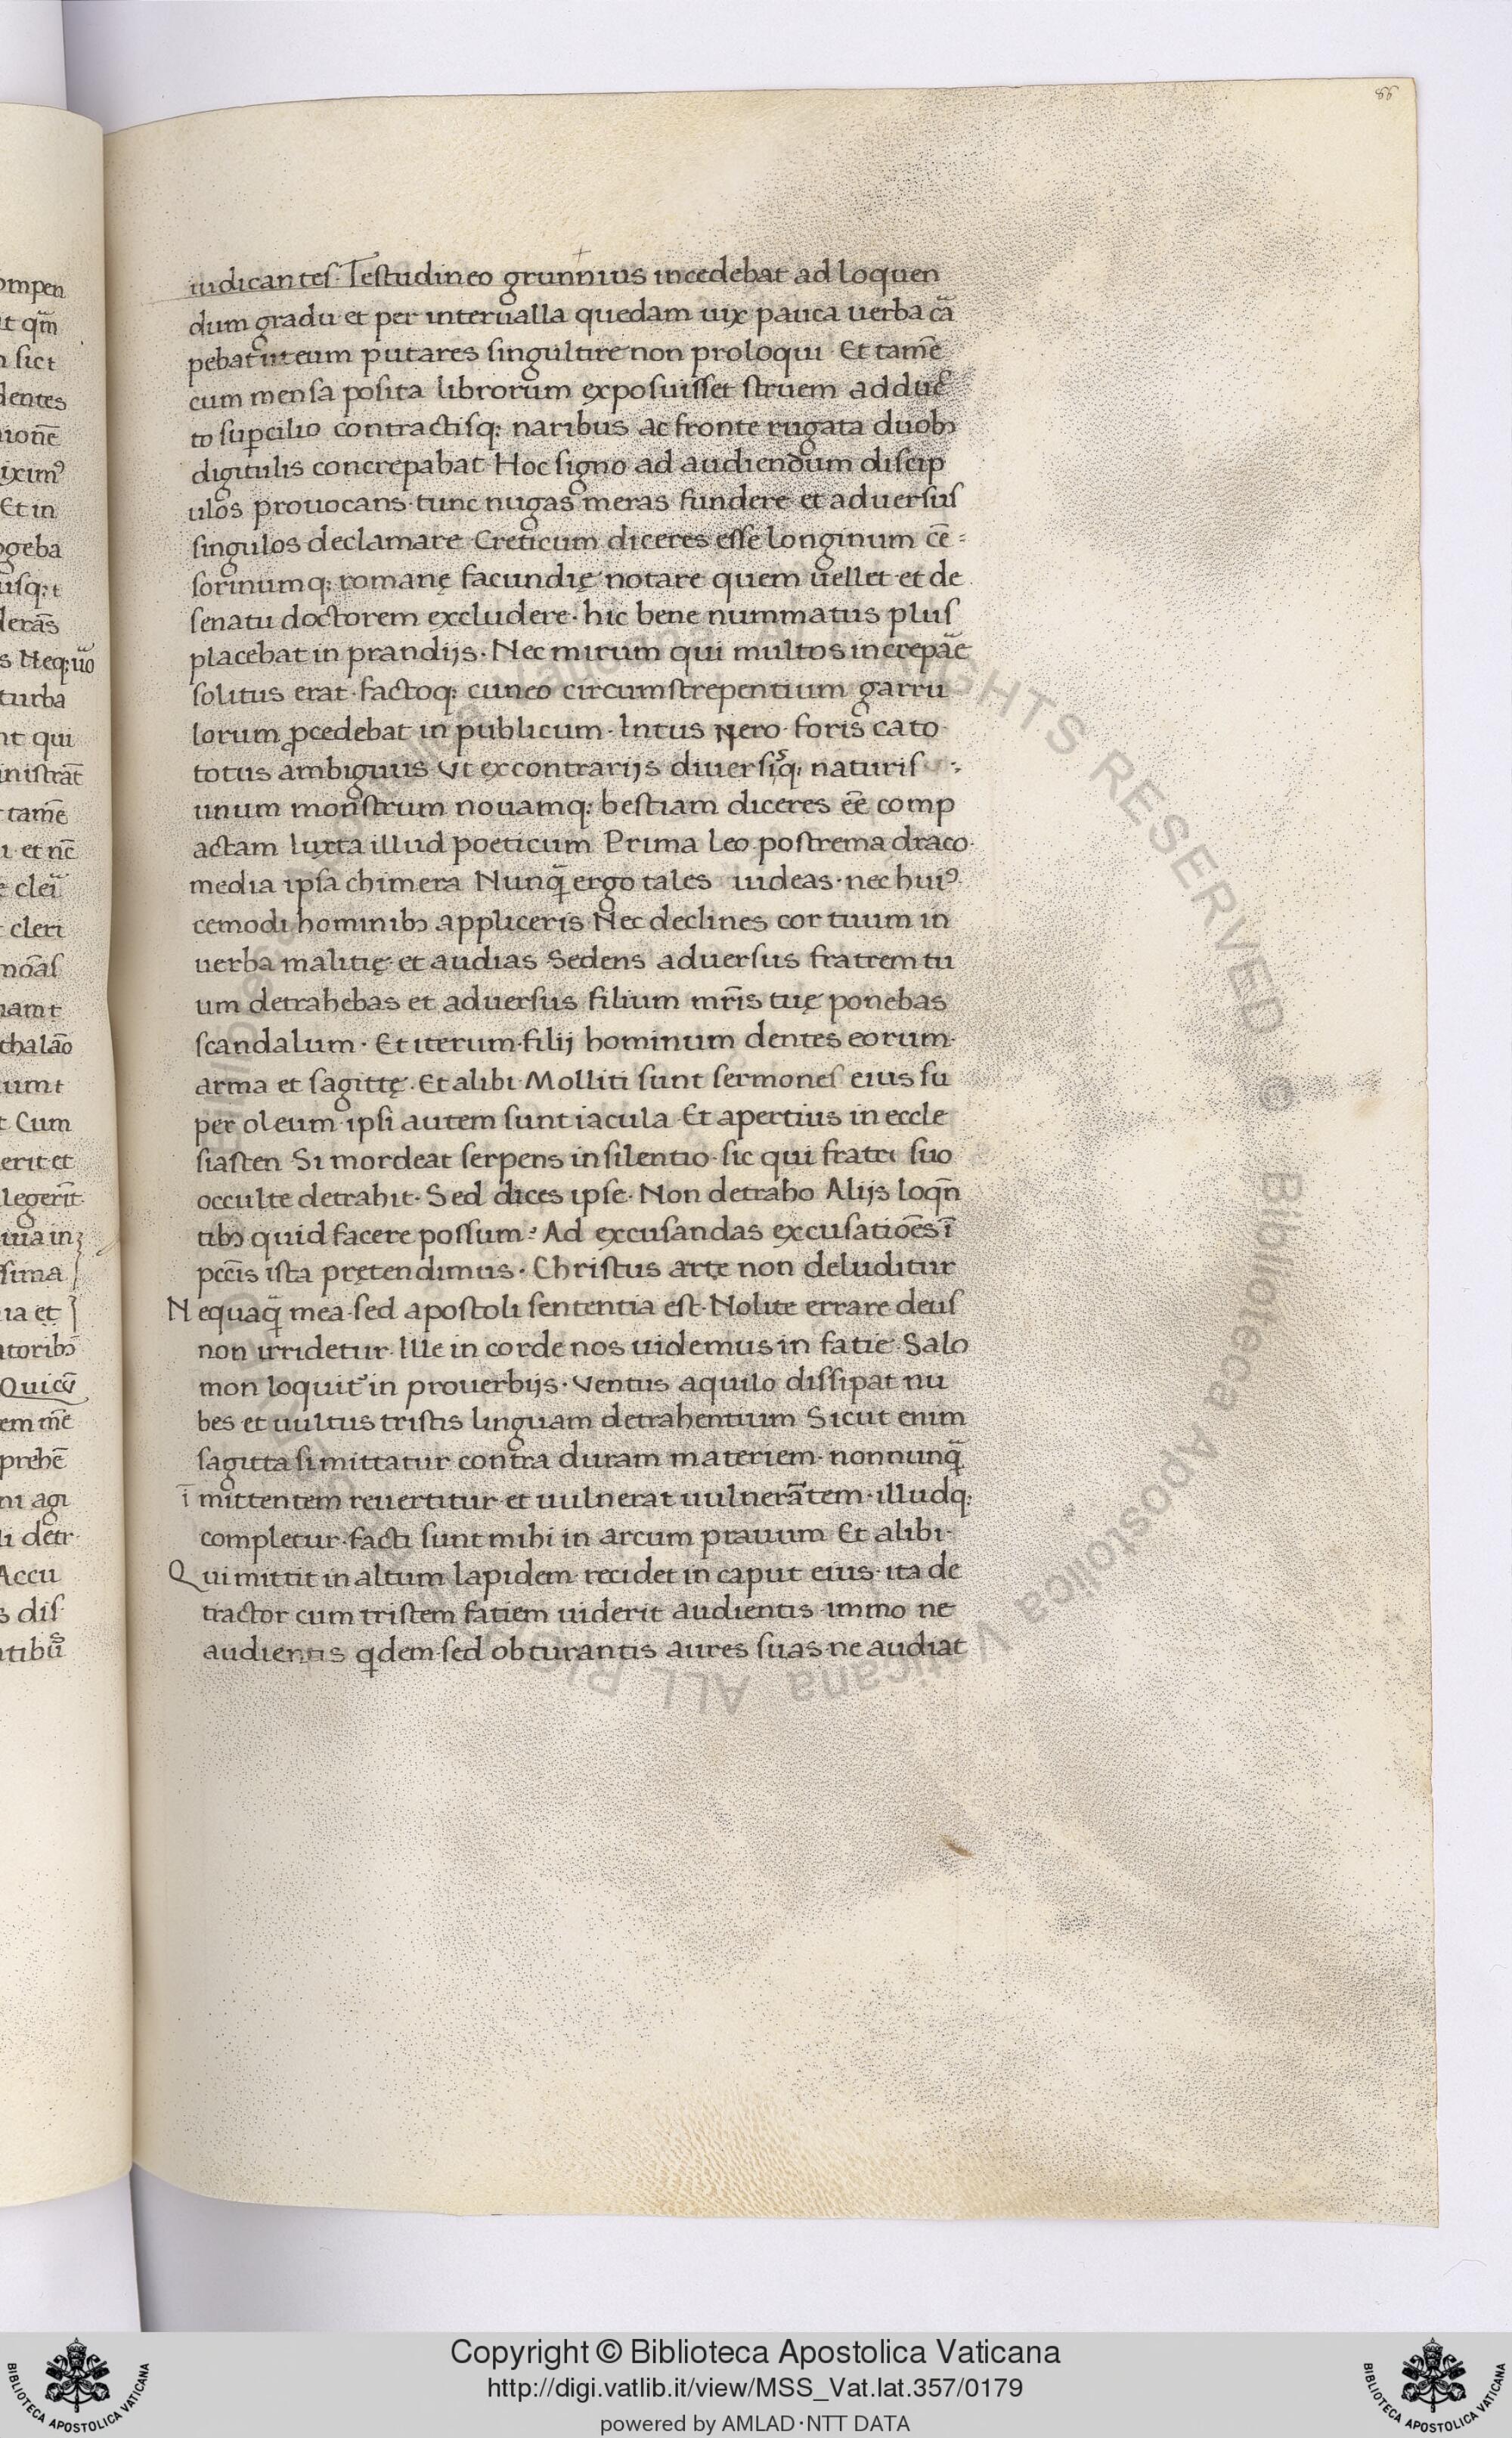 86
iudicantes. Testudineo grunnius incedebat ad loquen
dum gradu et per interualla quedam uix pauca uerba cā
pebat ut eum putares singultire non proloqui Et tamē
cum mensa posita librorum exposuisset struem adduc
to sup̱cilio contractisq; naribus ac fronte rugata duobꝫ
digitulis concrepabat Hoc signo ad audiendum discip
ulos prouocans tunc nugas meras fundere et aduersus
singulos declamare Creticum diceres esse longinum cē-
sorinumq; romanę facundię notare quem uellet et de
senatu doctorem excludere. hic bene nummatus plus
placebat in prandijs. Nec mirum qui multos increpāe
solitus erat factoq; cuneo circumstrepentium garru
lorum ꝓcedebat in publicum. Intus Nero foris cato
totus ambiguus Vt ex contrarijs diuersisq; naturis
unum monstrum nouamq; bestiam diceres eē comp
actam Iuxta illud poeticum Prima Leo postrema draco.
media ipsa chimera Nunq̄ ergo tales uideas. nec huiꝰ
cemodi hominibꝫ appliceris Nec declines cor tuum in
uerba malitię et audias Sedens aduersus fratrem tu
um detrahebas et aduersus filium mr̄is tuę ponebas
scandalum. Et iterum filij hominum dentes eorum.
arma et sagittę. Et alibi Molliti sunt sermones eius su
per oleum ipsi autem sunt iacula Et apertius in eccle
siasten Si mordeat serpens in silentio sic qui fratri suo
occulte detrahit. Sed dices ipse. Non detraho Alijs loqn̄
tibꝫ quid facere possum? Ad excusandas excusatiōes ī
pcc̄is ista prętendimus. Christus arte non deluditur
Nequaq̄ mea sed apostoli sententia est. Nolite errare deus
non irridetur. Ille in corde nos uidemus in fatie. Salo
mon loquit᷑ in prouerbijs. Ventus aquilo dissipat nu
bes et uultus tristis linguam detrahentium Sicut enim
sagitta si mittatur contra duram materiem. nonnunq̄
ī mittentem reuertitur et uulnerat uulnerātem. illudq;
completur facti sunt mihi in arcum prauum Et alibi.
Qui mittit in altum lapidem recidet in caput eius. ita de
tractor cum tristem fatiem uiderit audientis immo ne
audientis qdem sed obturantis aures suas ne audiat
ompen
t qm̄
sict
dentes
ionē
iximꝰ
Et in
ogeba
usq; t
derās
s Neq; uō
turba
nt qui
inistrāt
tamē
et nc̄
cleri
mōas
nam t
thalāo
ium t
t Cum
erit et
legerīt
iua in
sima
ia et
atoribꝫ
Quicū
em mē
prehē
ni agi
li detr
Accu
s dis
ntibus
© Biblioteca Apostolica Vaticana ALL RIGHTS RESERVED
Copyright © Biblioteca Apostolica Vaticana
http://digi.vatlib.it/view/MSS_Vat.lat.357/0179
powered by AMLAD·NTT DATA
BIBLIOTECA APOSTOLICA VATICANA
BIBLIOTECA APOSTOLICA VATICANA